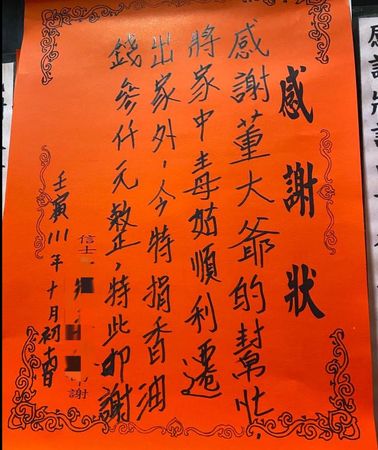 感謝狀
感謝董大爺的幫忙，
將家中毒菇順利遷
出家外，今特捐香油
錢參仟元整，特此叩謝
信士
謝
壬寅111年十月初